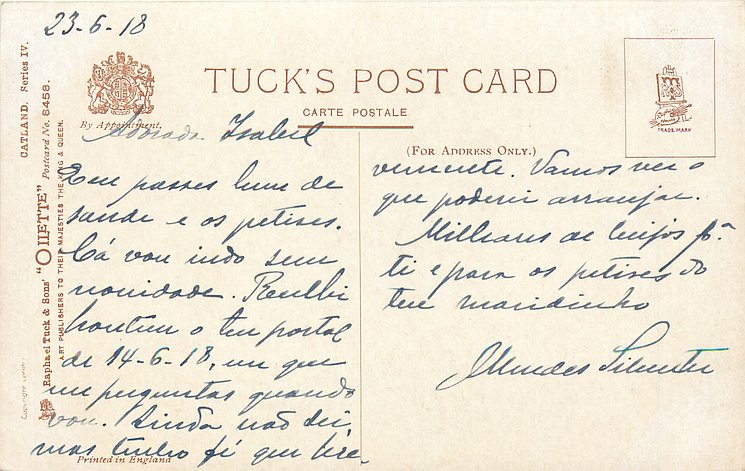 23-6-18
TUCK'S POST CARD
CARTE POSTALE
By Appointment.
(FOR ADDRESS ONLY.)
TRADE MARK
CATLAND. Series IV.
Raphael Tuck & Sons' "OILETTE" Postcard No. 8458.
ART PUBLISHERS TO THEIR MAJESTIES THE KING & QUEEN.
Adorada Isabel
Que passes bem de
saude e os petizes.
Cá vou indo sem
novidade. Recebi
hontem o teu postal
de 14-6-18, em que
me perguntas quando
vou. Ainda não sei,
mas tenho fé que bre-
Printed in England
vemente. Vamos ver o
que poderei arranjar.
Milhares de beijos pª
ti e para os petizes do
teu maridinho
Mendes Silvestre